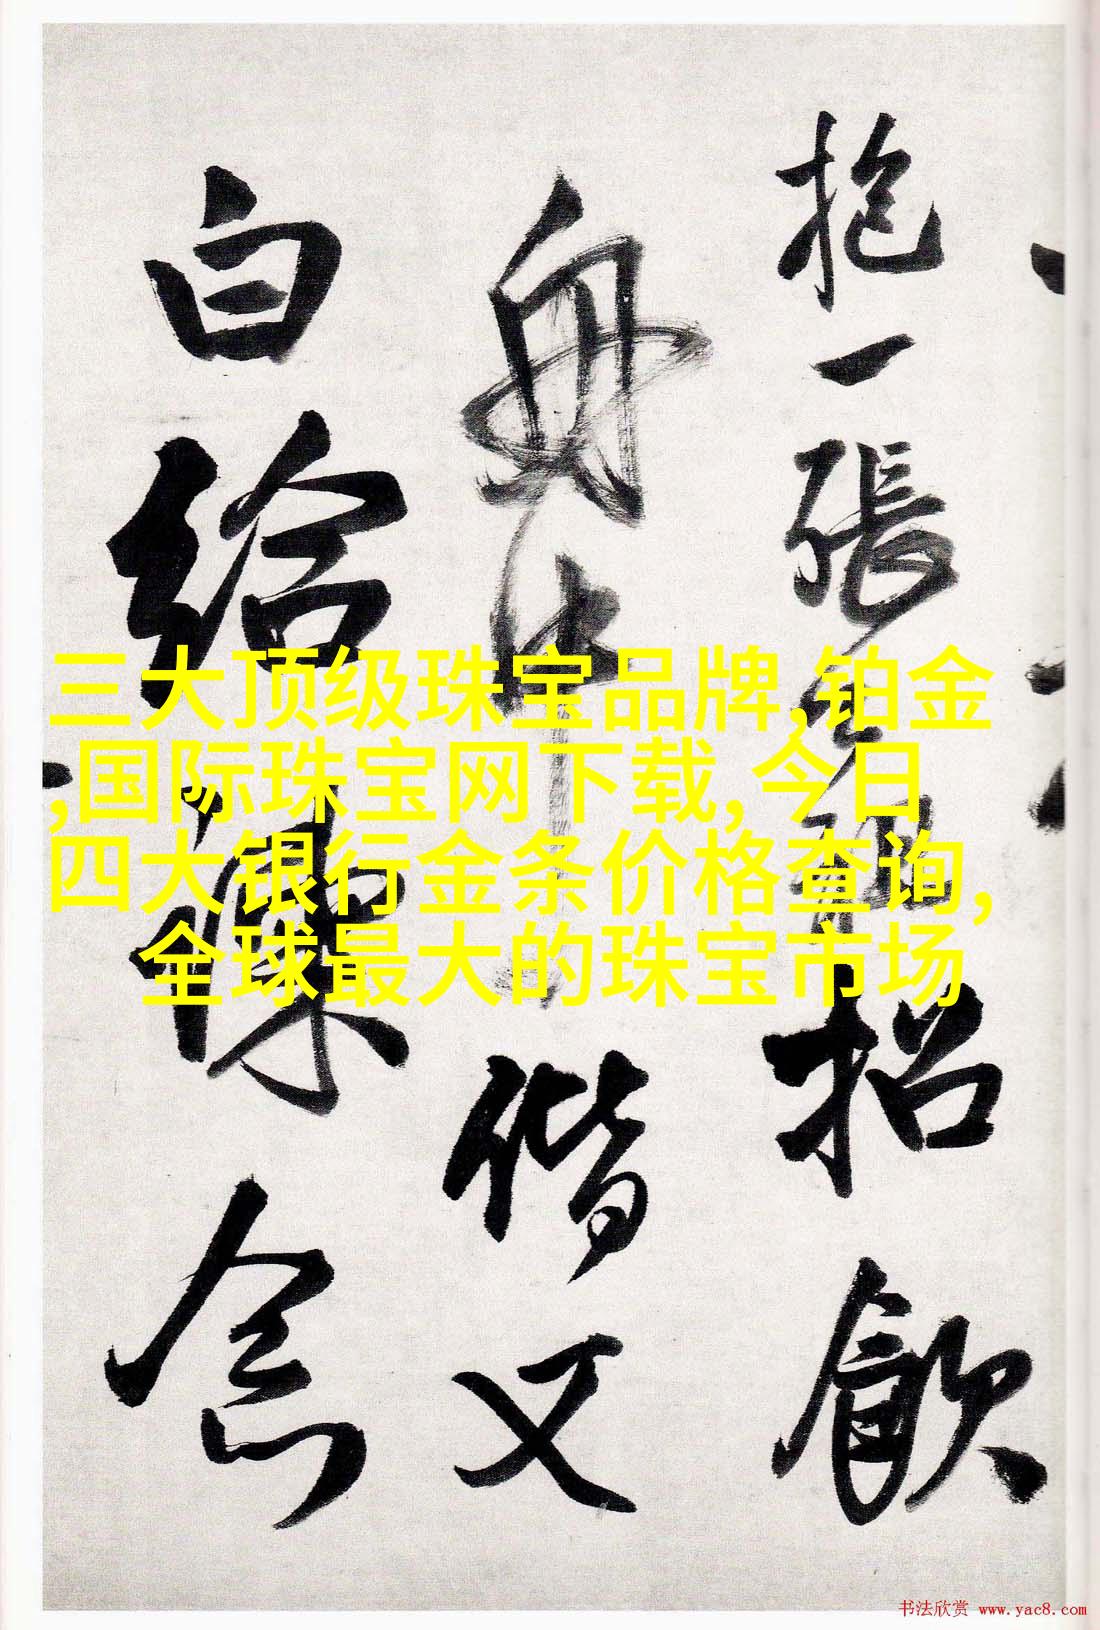 抱一張招飲
舟中偕又
白給諫念
三大顶级珠宝品牌,铂金
,国际珠宝网下载,今日
四大银行金条价格查询,
全球最大的珠宝市场
书法欣赏 www.yac8.com